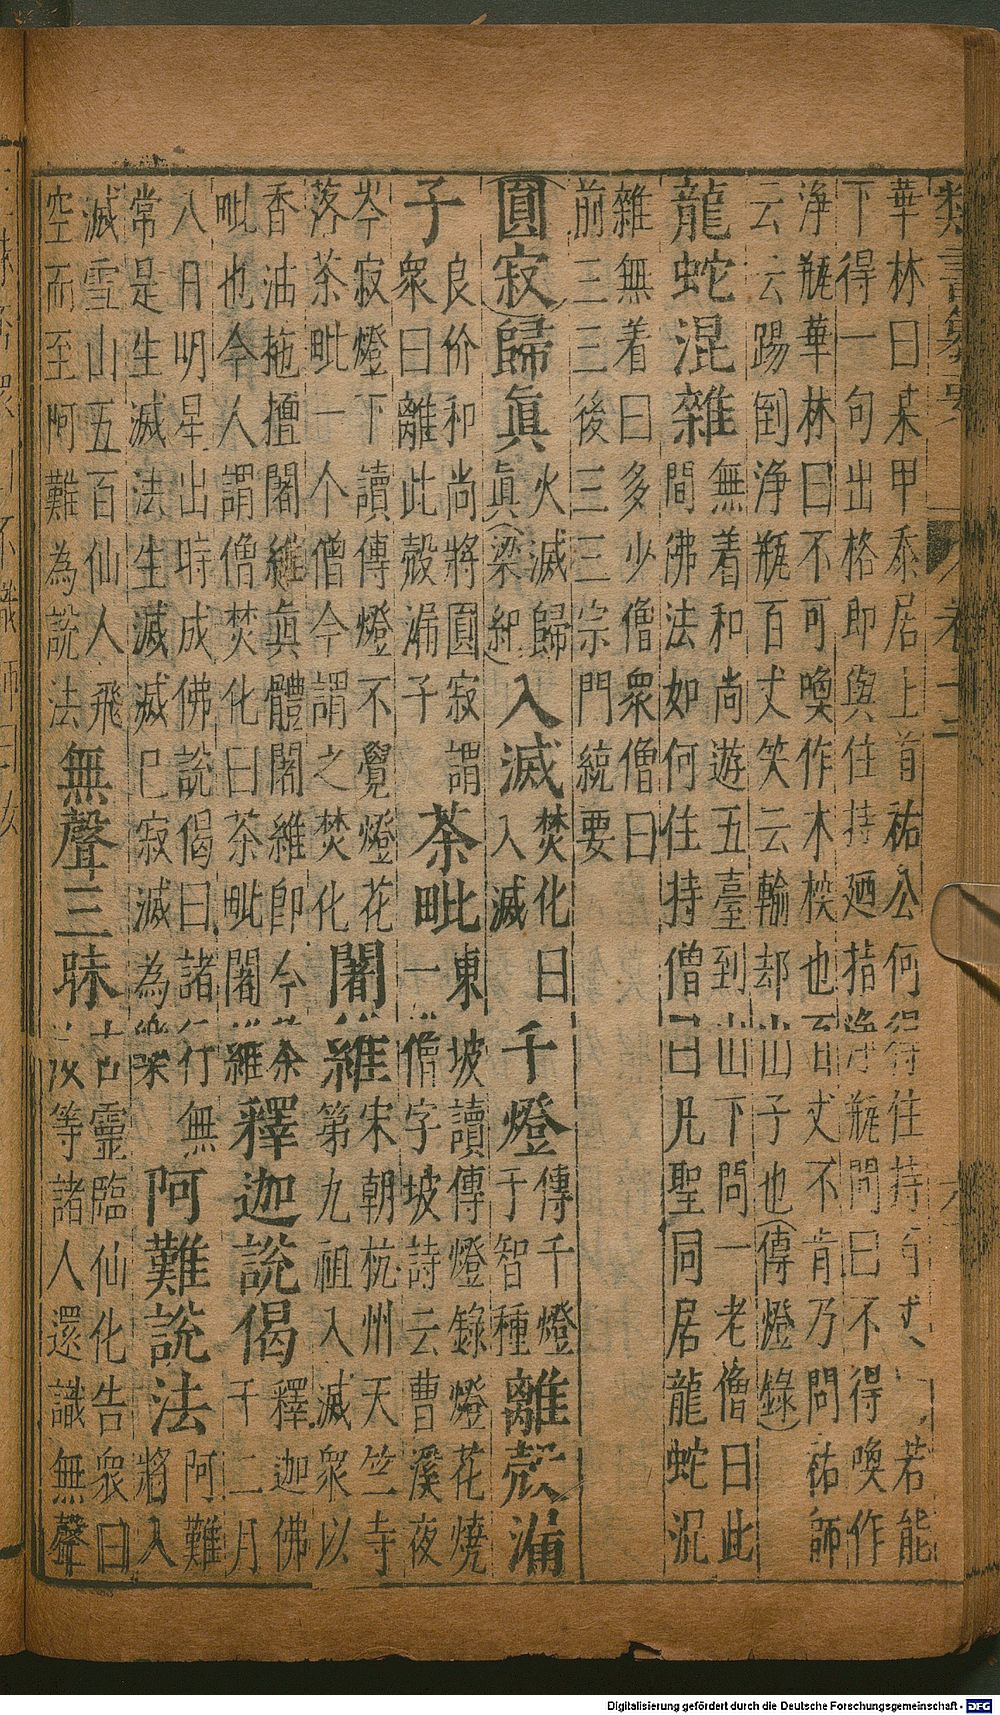 類書纂要 卷十二
華林曰某甲忝居上首祐公何得住持百丈　若能
下得一句出格即與住持廼指淨瓶問曰不得喚作
淨瓶華林曰不可喚作木𣔻也百丈不肯乃問祐師
云云踢倒淨瓶百丈笑云輸却山子也(傳燈錄)
龍蛇混雜 無着和尚遊五臺到山下問一老僧曰此
間佛法如何住持僧曰凡聖同居龍蛇混
雜無着曰多少僧衆僧曰
前三三後三三宗門統要
圓寂歸眞 火滅歸
眞(梁紀) 入滅 焚化曰
入滅 千燈 傳千燈
于智種 離殼漏
子 良价和尚將圓寂謂
衆曰離此殼漏子 茶毗 東坡讀傳燈錄燈花燒
一僧字坡詩云曹溪夜
岑寂燈下讀傳燈不覺燈花
落茶毗一个僧今謂之焚化 闍維 宋朝杭州天竺寺
第九祖入滅衆以
香油拖擅闍維眞體闍維即今茶
毗也今人謂僧焚化曰茶毗闍維 釋迦說偈 釋迦佛
于二月
八月明星出時成佛說偈曰諸行無
常是生滅法生滅滅已寂滅為樂 阿難說法 阿難
將入
滅雪山五百仙人飛
空而至阿難為說法 無聲三昧 古靈臨仙化告衆曰
汝等諸人還識無聲
Digitalisierung gefördert durch die Deutsche Forschungsgemeinschaft - DFG